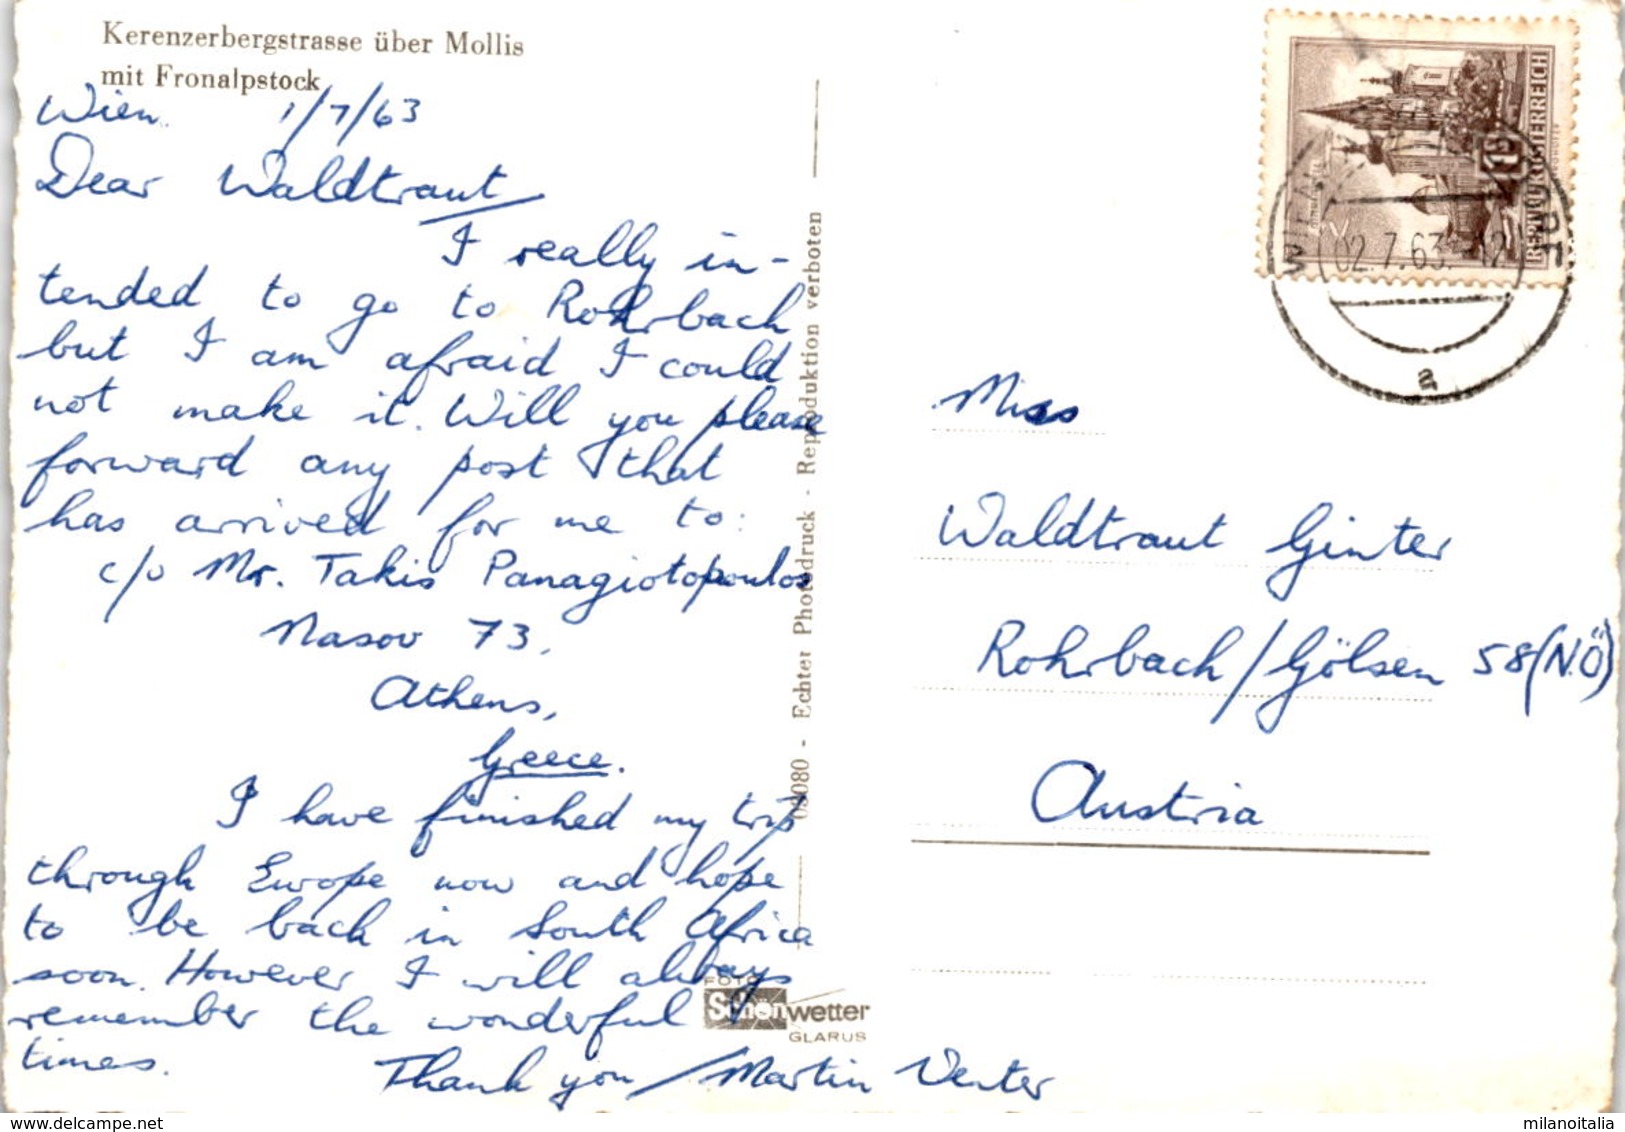 Kerenzerbergstrasse über Mollis
mit Fronalpstock
Wien. 1/7/63
Dear Waldtraut
I really in-
tended to go to Rohrbach
but I am afraid I could
not make it. Will you please
forward any post that
has arrived for me to:
c/o Mr. Takis Panagiotopoulos
Nasov 73,
Athens,
Greece.
I have finished my trip
through Europe now and hope
to be back in South Africa
soon. However I will always
remember the wonderful
times.
Thank you / Martin Venter
03080 - Echter Photodruck - Reproduktion verboten
FOTO
Schönwetter
GLARUS
REPUBLIK ÖSTERREICH
WIEN
02.7.63.-12
a
Miss
Waldtraut Ginter
Rohrbach/Gölsen 58 (N.Ö)
Austria
delcampe.net
milanoitalia